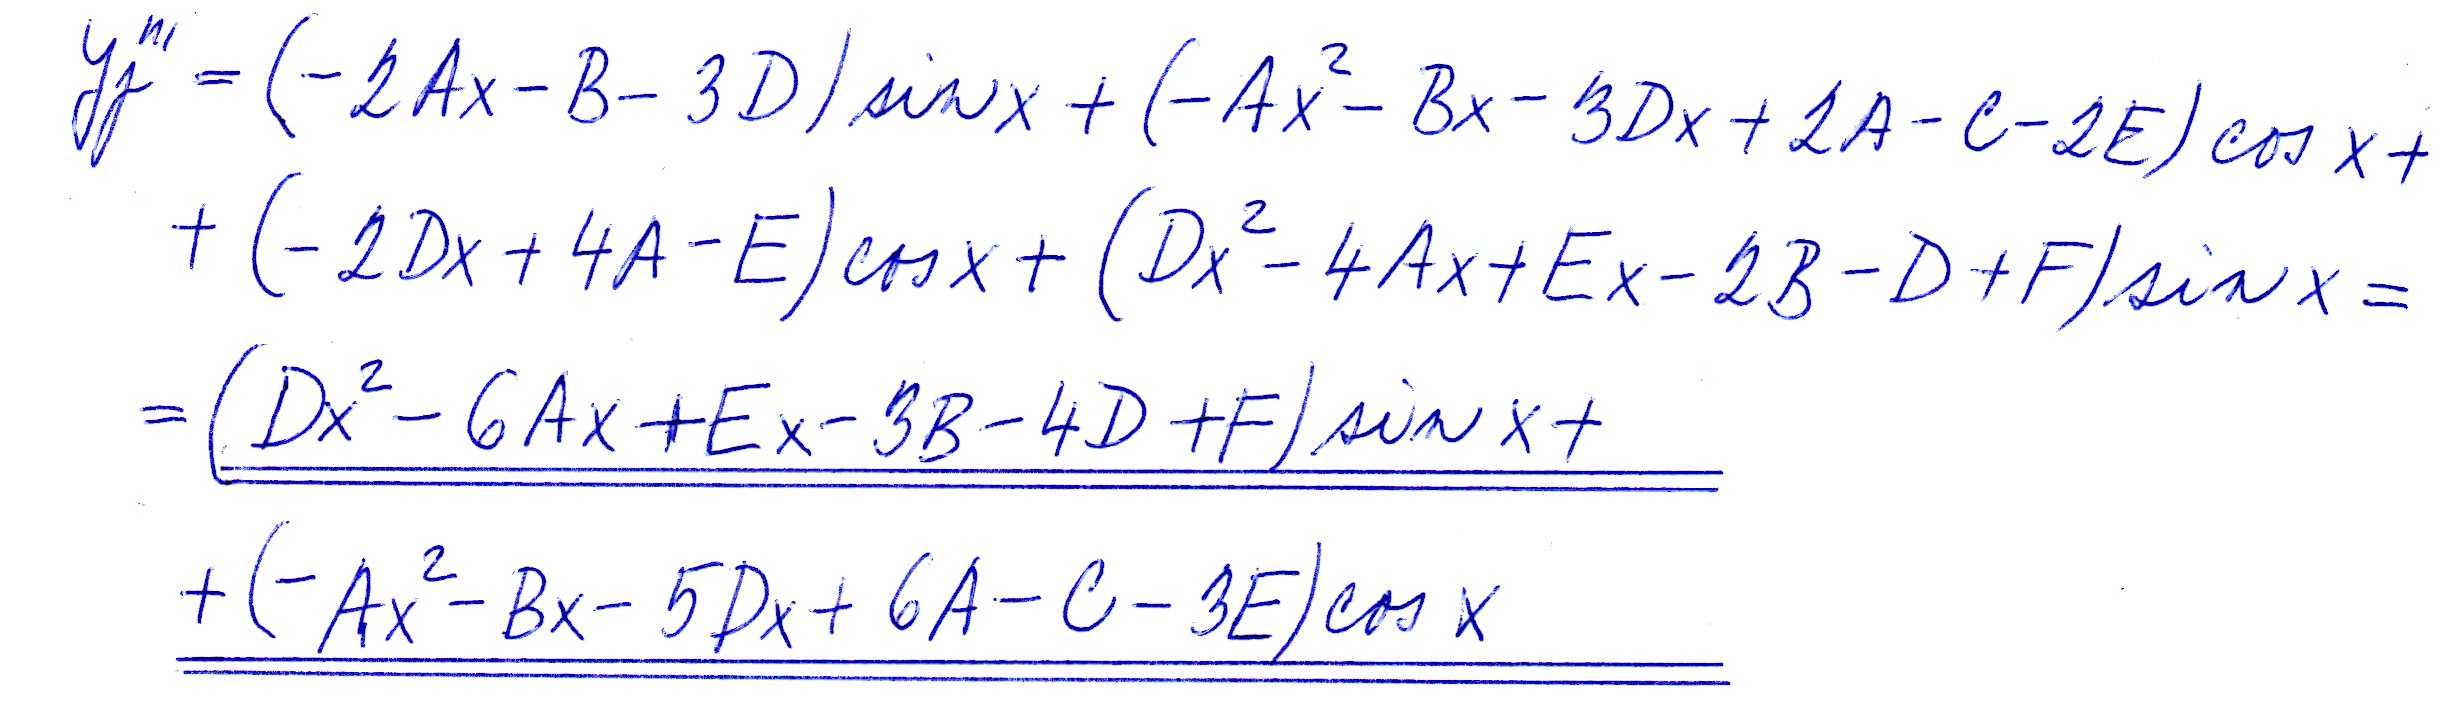 yз''' = (-2Ax - B - 3D) sin x + (-Ax² - Bx - 3Dx + 2A - C - 2E) cos x +
+ (-2Dx + 4A - E) cos x + (Dx² - 4Ax + Ex - 2B - D + F) sin x =
= (Dx² - 6Ax + Ex - 3B - 4D + F) sin x +
+ (-Ax² - Bx - 5Dx + 6A - C - 3E) cos x